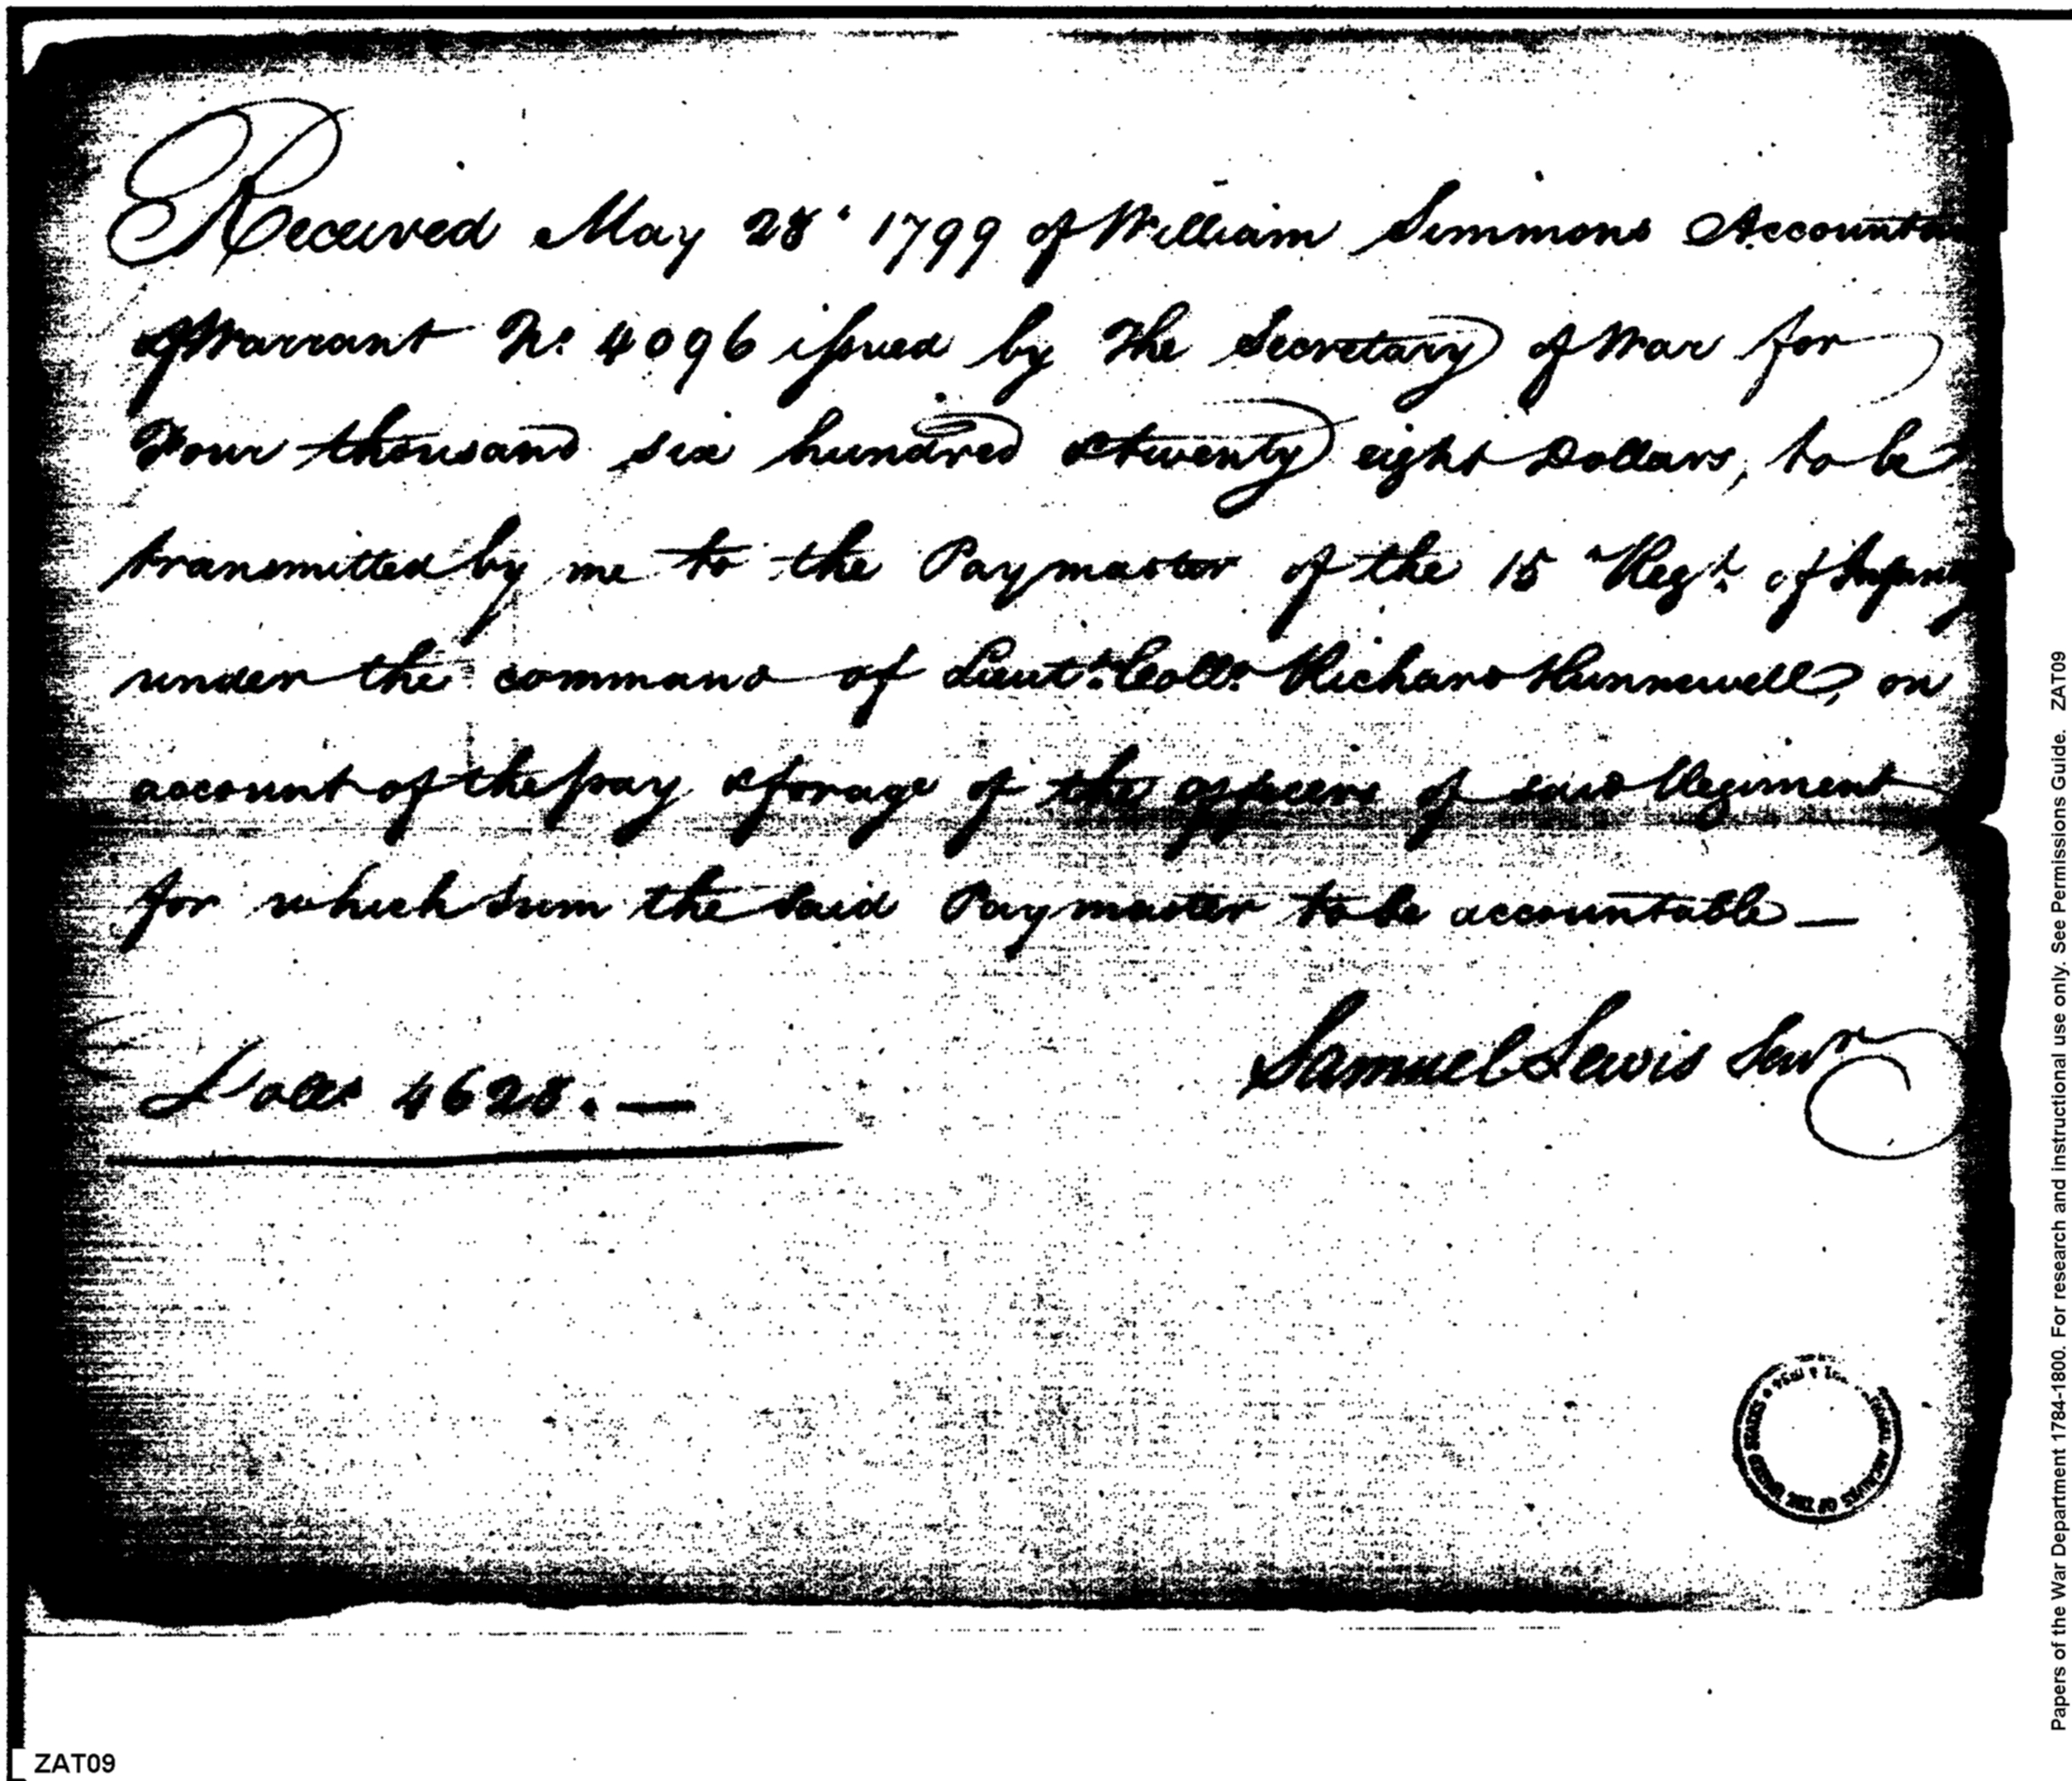 Received May 28 1799 of William Simmons Accountan
of Warrant No. 4096 issued by the Secretary of War for
Four thousand six hundred & twenty eight Dollars, to be
transmitted by me to the Paymaster of the 15 Regt. of Infantry
under the command of Lieut. Coll. Richard Hunnewell, on
account of the pay & forage of the officers of said Regiment
for which sum the said Paymaster to be accountable —
Samuel Lewis Senr
Dolls 4628. —
ARCHIVES OF THE UNITED STATES
Papers of the War Department 1784-1800. For research and instructional use only. See Permissions Guide. ZAT09
ZAT09